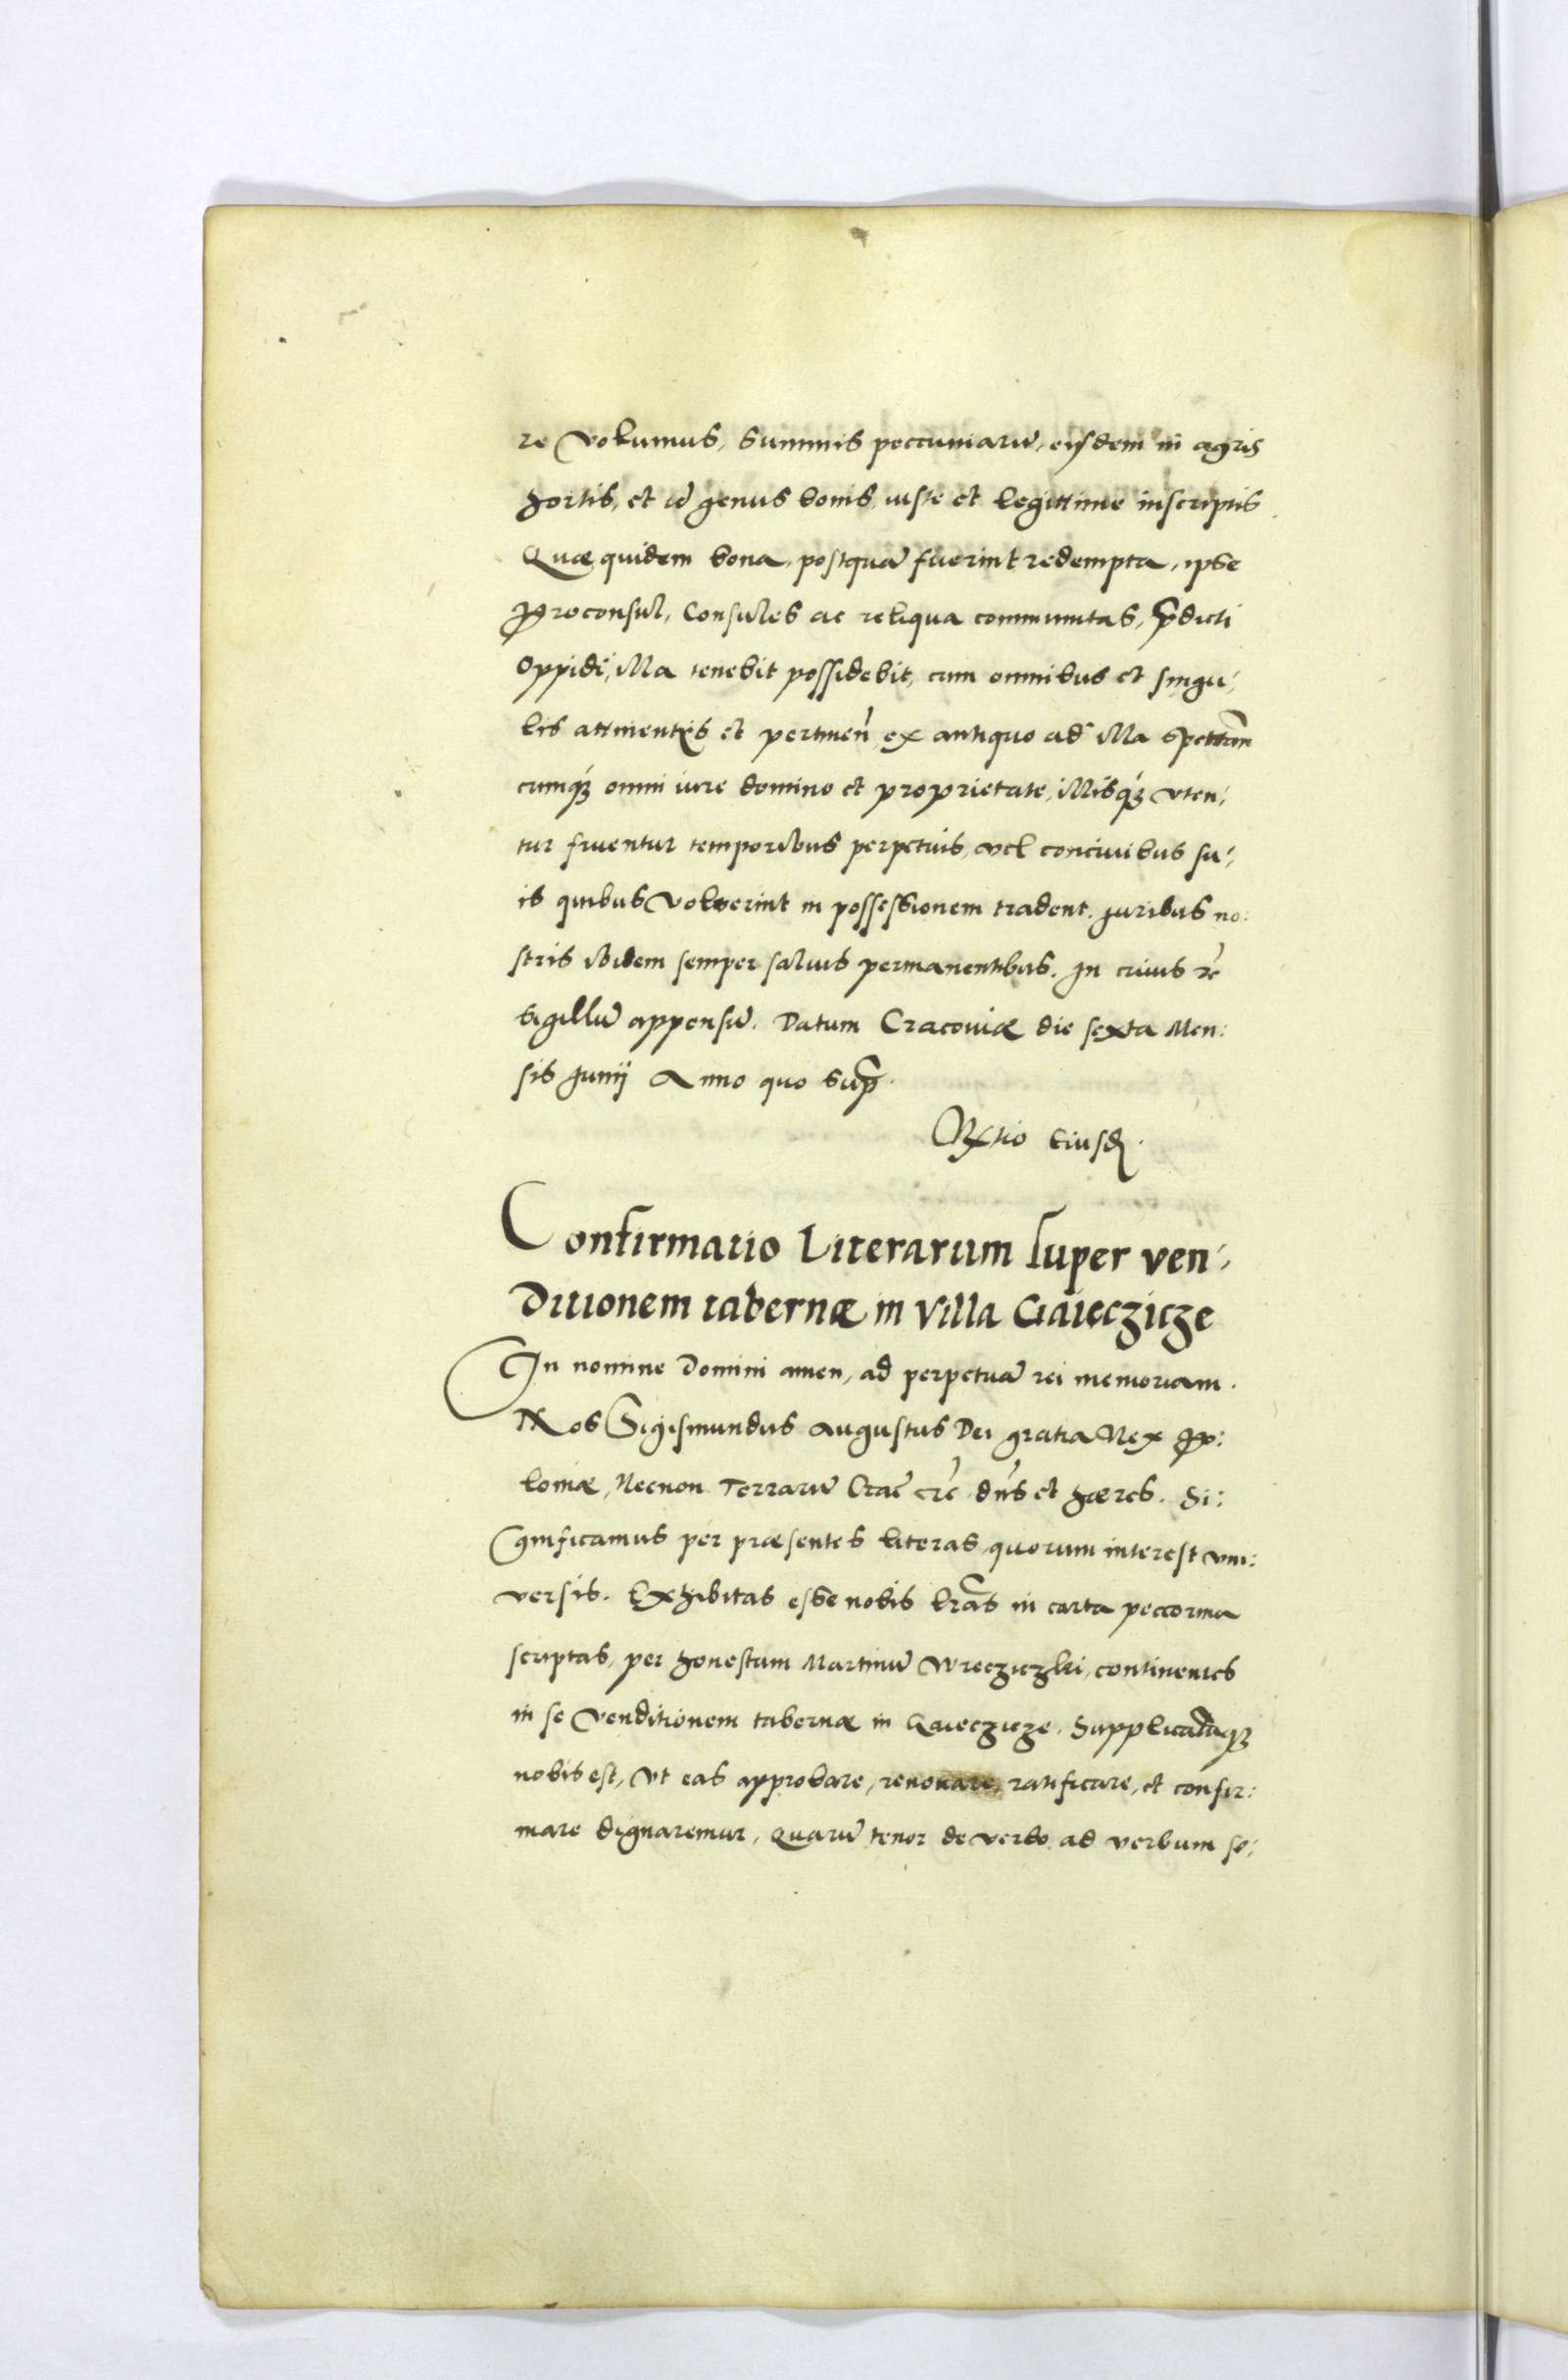 re volumus, summis peccuniarũ, eysdem in agris
hortis, et id genus bonis, iuste et legittime inscriptis
Quæ quidem bona, postquã fuerint redempta, ipse
Proconsul, Consules ac reliqua communitas, p̃dicti
oppidi, illa tenebit possidebit, cum omnibus et singu,
lis attinentijs et pertineñ ex antiquo ad illa spectañ
cumqȝ omni iure domino et proprietate, illisqȝ vten,
tur fruentur temporibus perpetuis, vel conciuibus su,
is quibus voluerint in possessionem tradent. Juribus no:
stris ibidem semper saluis permanentibus. In cuius rē
sigillũ appensũ. Datum Cracoviæ die sexta Men:
sis Junij Anno quo sup̃.
Rtio eiusd.
Confirmatio Literarum super ven,
ditionem tabernæ in Villa Gaieczicze
In nomine Domini amen, ad perpetuã rei memoriam.
Nos Sigismundus Augustus Dei gratia Rex Po:
loniæ, Necnon Terrarũ Crac̃ etc̃ dñs et hæres. Si:
gnificamus per præsentes literas, quorum interest vni:
versis. Exhibitas esse nobis lr̃as in carta peccorina
scriptas, per honestum Martinũ Wrecziczki, continentes
in se venditionem tabernæ in Gaieczicze. Supplicatũqȝ
nobis est, vt eas approbare, renovare, ratificare, et confir:
mare dignaremur, Quarũ tenor de verbo ad verbum se,